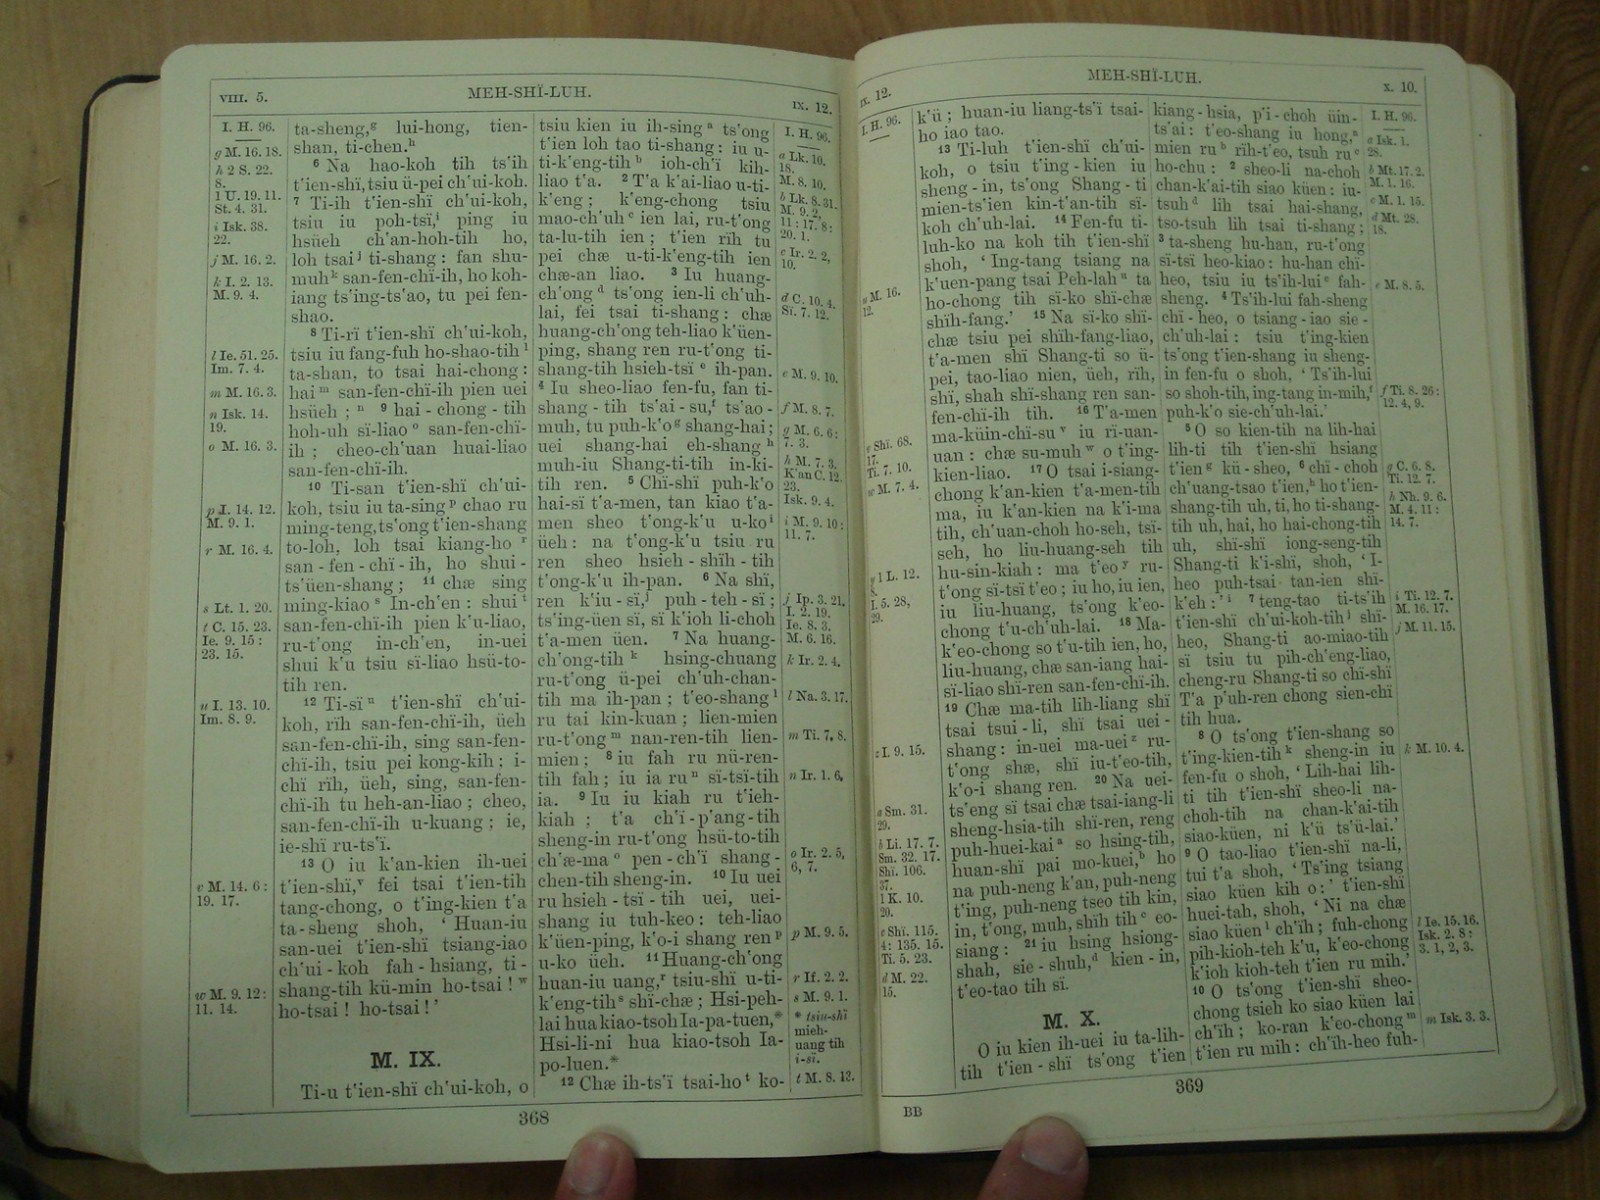 VIII. 5.
MEH-SHÏ-LUH.
IX. 12.
I. H. 96.
g M. 16. 18.
h 2 S. 22.
8.
1 U. 19. 11.
St. 4. 31.
i Isk. 38.
22.
j M. 16. 2.
k I. 2. 13.
M. 9. 4.
l Ie. 51. 25.
Im. 7. 4.
m M. 16. 3.
n Isk. 14.
19.
o M. 16. 3.
p I. 14. 12.
M. 9. 1.
r M. 16. 4.
s Lt. 1. 20.
t C. 15. 23.
Ie. 9. 15 :
23. 15.
u I. 13. 10.
Im. 8. 9.
v M. 14. 6 :
19. 17.
w M. 9. 12 :
11. 14.
ta-sheng,g lui-hong, tien-
shan, ti-chen.h
6 Na hao-koh tih ts'ih
t'ien-shï, tsiu ü-pei ch'ui-koh.
7 Ti-ih t'ien-shï ch'ui-koh,
tsiu iu poh-tsï,i ping iu
hsüeh ch'an-hoh-tih ho,
loh tsai j ti-shang : fan shu-
muh k san-fen-chï-ih, ho koh-
iang ts'ing-ts'ao, tu pei fen-
shao.
8 Ti-rï t'ien-shï ch'ui-koh,
tsiu iu fang-fuh ho-shao-tih l
ta-shan, to tsai hai-chong :
hai m san-fen-chï-ih pien uei
hsüeh ; n 9 hai-chong-tih
hoh-uh sï-liao o san-fen-chï-
ih ; cheo-ch'uan huai-liao
san-fen-chï-ih.
10 Ti-san t'ien-shï ch'ui-
koh, tsiu iu ta-sing p chao ru
ming-teng, ts'ong t'ien-shang
to-loh, loh tsai kiang-ho r
san-fen-chï-ih, ho shui-
ts'üen-shang ; 11 chæ sing
ming-kiao s In-ch'en : shui t
san-fen-chï-ih pien k'u-liao,
ru-t'ong in-ch'en, in-uei
shui k'u tsiu sï-liao hsü-to-
tih ren.
12 Ti-sï u t'ien-shï ch'ui-
koh, rïh san-fen-chï-ih, üeh
san-fen-chï-ih, sing san-fen-
chï-ih, tsiu pei kong-kih ; i-
chï rïh, üeh, sing, san-fen-
chï-ih tu heh-an-liao ; cheo,
san-fen-chï-ih u-kuang ; ie,
ie-shï ru-ts'ï.
13 O iu k'an-kien ih-uei
t'ien-shï,v fei tsai t'ien-tih
tang-chong, o t'ing-kien t'a
ta-sheng shoh, ' Huan-iu
san-uei t'ien-shï tsiang-iao
ch'ui-koh fah-hsiang, ti-
shang-tih kü-min ho-tsai ! w
ho-tsai ! ho-tsai !'
M. IX.
Ti-u t'ien-shï ch'ui-koh, o
tsiu kien iu ih-sing a ts'ong
t'ien loh tao ti-shang : iu u-
ti-k'eng-tih b ioh-ch'ï kih-
liao t'a. 2 T'a k'ai-liao u-ti-
k'eng ; k'eng-chong tsiu
mao-ch'uh c ien lai, ru-t'ong
ta-lu-tih ien ; t'ien rïh tu
pei chæ u-ti-k'eng-tih ien
chæ-an liao. 3 Iu huang-
ch'ong d ts'ong ien-li ch'uh-
lai, fei tsai ti-shang : chæ
huang-ch'ong teh-liao k'üen-
ping, shang ren ru-t'ong ti-
shang-tih hsieh-tsï e ih-pan.
4 Iu sheo-liao fen-fu, fan ti-
shang-tih ts'ai-su,f ts'ao-
muh, tu puh-k'o g shang-hai ;
uei shang-hai eh-shang h
muh-iu Shang-ti-tih in-ki-
tih ren. 5 Chï-shï puh-k'o
hai-sï t'a-men, tan kiao t'a-
men sheo t'ong-k'u u-ko i
üeh : na t'ong-k'u tsiu ru
ren sheo hsieh-shïh-tih
t'ong-k'u ih-pan. 6 Na shï,
ren k'iu-sï,j puh-teh-sï ;
ts'ing-üen sï, sï k'ioh li-choh
t'a-men üen. 7 Na huang-
ch'ong-tih k hsing-chuang
ru-t'ong ü-pei ch'uh-chan-
tih ma ih-pan ; t'eo-shang l
ru tai kin-kuan ; lien-mien
ru-t'ong m nan-ren-tih lien-
mien ; 8 iu fah ru nü-ren-
tih fah ; iu ia ru n sï-tsï-tih
ia. 9 Iu iu kiah ru t'ieh-
kiah ; t'a ch'ï-p'ang-tih
sheng-in ru-t'ong hsü-to-tih
ch'æ-ma o pen-ch'ï shang-
chen-tih sheng-in. 10 Iu uei
ru hsieh-tsï-tih uei, uei-
shang iu tuh-keo : teh-liao
k'üen-ping, k'o-i shang ren p
u-ko üeh. 11 Huang-ch'ong
huan-iu uang,r tsiu-shï u-ti-
k'eng-tih s shï-chæ ; Hsi-peh-
lai hua kiao-tsoh Ia-pa-tuen,*
Hsi-li-ni hua kiao-tsoh Ia-
po-luen.*
12 Chæ ih-ts'ï tsai-ho t ko-
I. H. 96.
a Lk. 10.
18.
M. 8. 10.
b Lk. 8. 31.
M. 9. 2,
11 : 17. 8 :
20. 1.
c Ir. 2. 2,
10.
d C. 10. 4.
Sï. 7. 12.
e M. 9. 10.
f M. 8. 7.
g M. 6. 6 :
7. 3.
h M. 7. 3.
K'an C. 12.
23.
Isk. 9. 4.
i M. 9. 10 :
11. 7.
j Ip. 3. 21.
I. 2. 19.
Ie. 8. 3.
M. 6. 16.
k Ir. 2. 4.
l Na. 3. 17.
m Ti. 7. 8.
n Ir. 1. 6.
o Ir. 2. 5,
6, 7.
p M. 9. 5.
r If. 2. 2.
s M. 9. 1.
* tsiu-shï
mieh-
uang tih
i-sï.
t M. 8. 13.
368
IX. 12.
MEH-SHÏ-LUH.
X. 10.
I. H. 96.
u M. 16.
12.
v Shï. 68.
17.
Ti. 7. 10.
w M. 7. 4.
y 1 L. 12.
8.
I. 5. 28,
29.
z I. 9. 15.
a Sm. 31.
29.
b Li. 17. 7.
Sm. 32. 17.
Shï. 106.
37.
1 K. 10.
20.
c Shï. 115.
4 : 135. 15.
Ti. 5. 23.
d M. 22.
15.
k'ü ; huan-iu liang-ts'ï tsai-
ho iao tao.
13 Ti-luh t'ien-shï ch'ui-
koh, o tsiu t'ing-kien iu
sheng-in, ts'ong Shang-ti
mien-ts'ien kin-t'an-tih sï-
koh ch'uh-lai. 14 Fen-fu ti-
luh-ko na koh tih t'ien-shï
shoh, ' Ing-tang tsiang na
k'uen-pang tsai Peh-lah u ta
ho-chong tih sï-ko shï-chæ
shïh-fang.' 15 Na sï-ko shï-
chæ tsiu pei shïh-fang-liao,
t'a-men shï Shang-ti so ü-
pei, tao-liao nien, üeh, rïh,
shï, shah shï-shang ren san-
fen-chï-ih tih. 16 T'a-men
ma-küin-chï-su v iu rï-uan-
uan : chæ su-muh w o t'ing-
kien-liao. 17 O tsai i-siang-
chong k'an-kien t'a-men-tih
ma, iu k'an-kien na k'i-ma
tih, ch'uan-choh ho-seh, tsï-
seh, ho liu-huang-seh tih
hu-sin-kiah : ma t'eo y ru-
t'ong sï-tsï t'eo ; iu ho, iu ien,
iu liu-huang, ts'ong k'eo-
chong t'u-ch'uh-lai. 18 Ma-
k'eo-chong so t'u-tih ien, ho,
liu-huang, chæ san-iang hai-
sï-liao shï-ren san-fen-chï-ih.
19 Chæ ma-tih lih-liang shï
tsai tsui-li, shï tsai uei-
shang : in-uei ma-uei z ru-
t'ong shæ, shï iu-t'eo-tih,
k'o-i shang ren. 20 Na uei-
ts'eng sï tsai chæ tsai-iang-li
sheng-hsia-tih shï-ren, reng
puh-huei-kai a so hsing-tih,
huan-shï pai mo-kuei,b ho
na puh-neng k'an, puh-neng
t'ing, puh-neng tseo tih kin,
in, t'ong, muh, shïh tih c eo-
siang : 21 iu hsing hsiong-
shah, sie-shuh,d kien-in,
t'eo-tao tih sï.
M. X.
O iu kien ih-uei iu ta-lih-
tih t'ien-shï ts'ong t'ien
BB
kiang-hsia, p'i-choh üin-
ts'ai : t'eo-shang iu hong,a
mien ru b rïh-t'eo, tsuh ru c
ho-chu : 2 sheo-li na-choh
chan-k'ai-tih siao küen : iu-
tsuh d lih tsai hai-shang,
tso-tsuh lih tsai ti-shang ;
3 ta-sheng hu-han, ru-t'ong
sï-tsï heo-kiao : hu-han chï-
heo, tsiu iu ts'ih-lui e fah-
sheng. 4 Ts'ih-lui fah-sheng
chï-heo, o tsiang-iao sie-
ch'uh-lai : tsiu t'ing-kien
ts'ong t'ien-shang iu sheng-
in fen-fu o shoh, ' Ts'ih-lui
so shoh-tih, ing-tang in-mih,f
puh-k'o sie-ch'uh-lai.'
5 O so kien-tih na lih-hai
lih-ti tih t'ien-shï hsiang
t'ien g kü-sheo, 6 chï-choh
ch'uang-tsao t'ien,h ho t'ien-
shang-tih uh, ti, ho ti-shang-
tih uh, hai, ho hai-chong-tih
uh, shï-shï iong-seng-tih
Shang-ti k'i-shï, shoh, ' I-
heo puh-tsai tan-ien shï-
k'eh :' i 7 teng-tao ti-ts'ih
t'ien-shï ch'ui-koh-tih j shï-
heo, Shang-ti ao-miao-tih
sï tsiu tu pih-ch'eng-liao,
cheng-ru Shang-ti so chï-shï
T'a p'uh-ren chong sien-chï
tih hua.
8 O ts'ong t'ien-shang so
t'ing-kien-tih k sheng-in iu
fen-fu o shoh, ' Lih-hai lih-
ti tih t'ien-shï sheo-li na-
choh-tih na chan-k'ai-tih
siao-küen, ni k'ü ts'ü-lai.'
9 O tao-liao t'ien-shï na-li,
tui t'a shoh, ' Ts'ing tsiang
siao küen kih o :' t'ien-shï
huei-tah, shoh, ' Ni na chæ
siao küen l ch'ïh ; fuh-chong
pih-kioh-teh k'u, k'eo-chong
k'ioh kioh-teh t'ien ru mih.'
10 O ts'ong t'ien-shï sheo-
chong tsieh ko siao küen lai
ch'ïh ; ko-ran k'eo-chong m
t'ien ru mih : ch'ïh-heo fuh-
I. H. 96.
a Isk. 1.
28.
b Mt. 17. 2.
M. 1. 16.
c M. 1. 15.
d Mt. 28.
18.
e M. 8. 5.
f Ti. 8. 26 :
12. 4, 9.
g C. 6. 8.
Ti. 12. 7.
h Nh. 9. 6.
M. 4. 11 :
14. 7.
i Ti. 12. 7.
M. 16. 17.
j M. 11. 15.
k M. 10. 4.
l Ie. 15. 16.
Isk. 2. 8 :
3. 1, 2, 3.
m Isk. 3. 3.
369